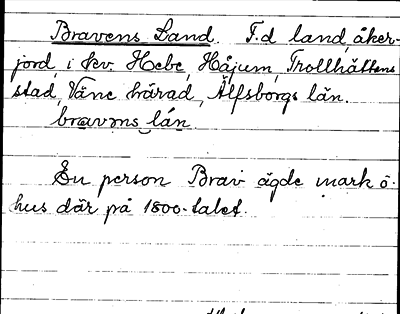 Bravens Land. F.d land, åker-
jord, i kv. Hebe, Håjum, Trollhättans
stad, Väne härad, Älfsborgs län.
bravəns lán
En person Brav ägde mark o.
hus där på 1800-talet.